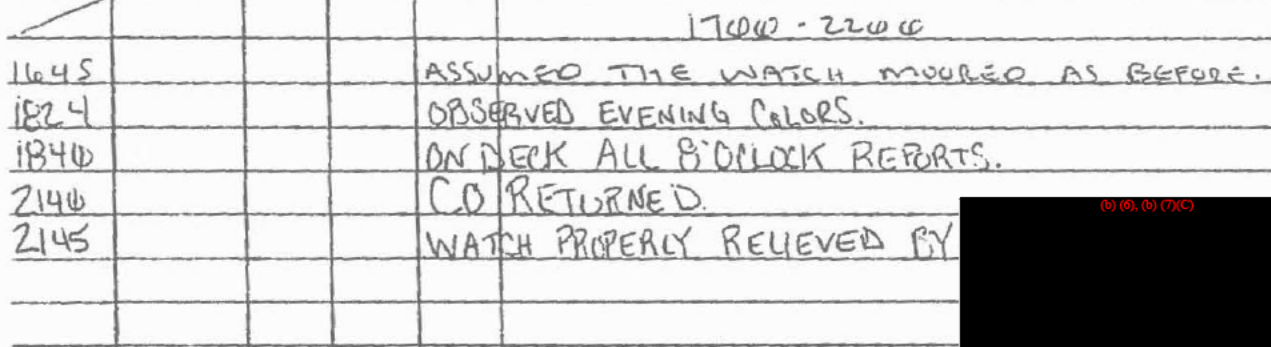 1700 - 2200
1645 ASSUMED THE WATCH MOORED AS BEFORE.
1824 OBSERVED EVENING COLORS.
1840 ON DECK ALL 8'OCLOCK REPORTS.
2140 CO RETURNED.
(b) (6), (b) (7)(C)
2145 WATCH PROPERLY RELIEVED BY